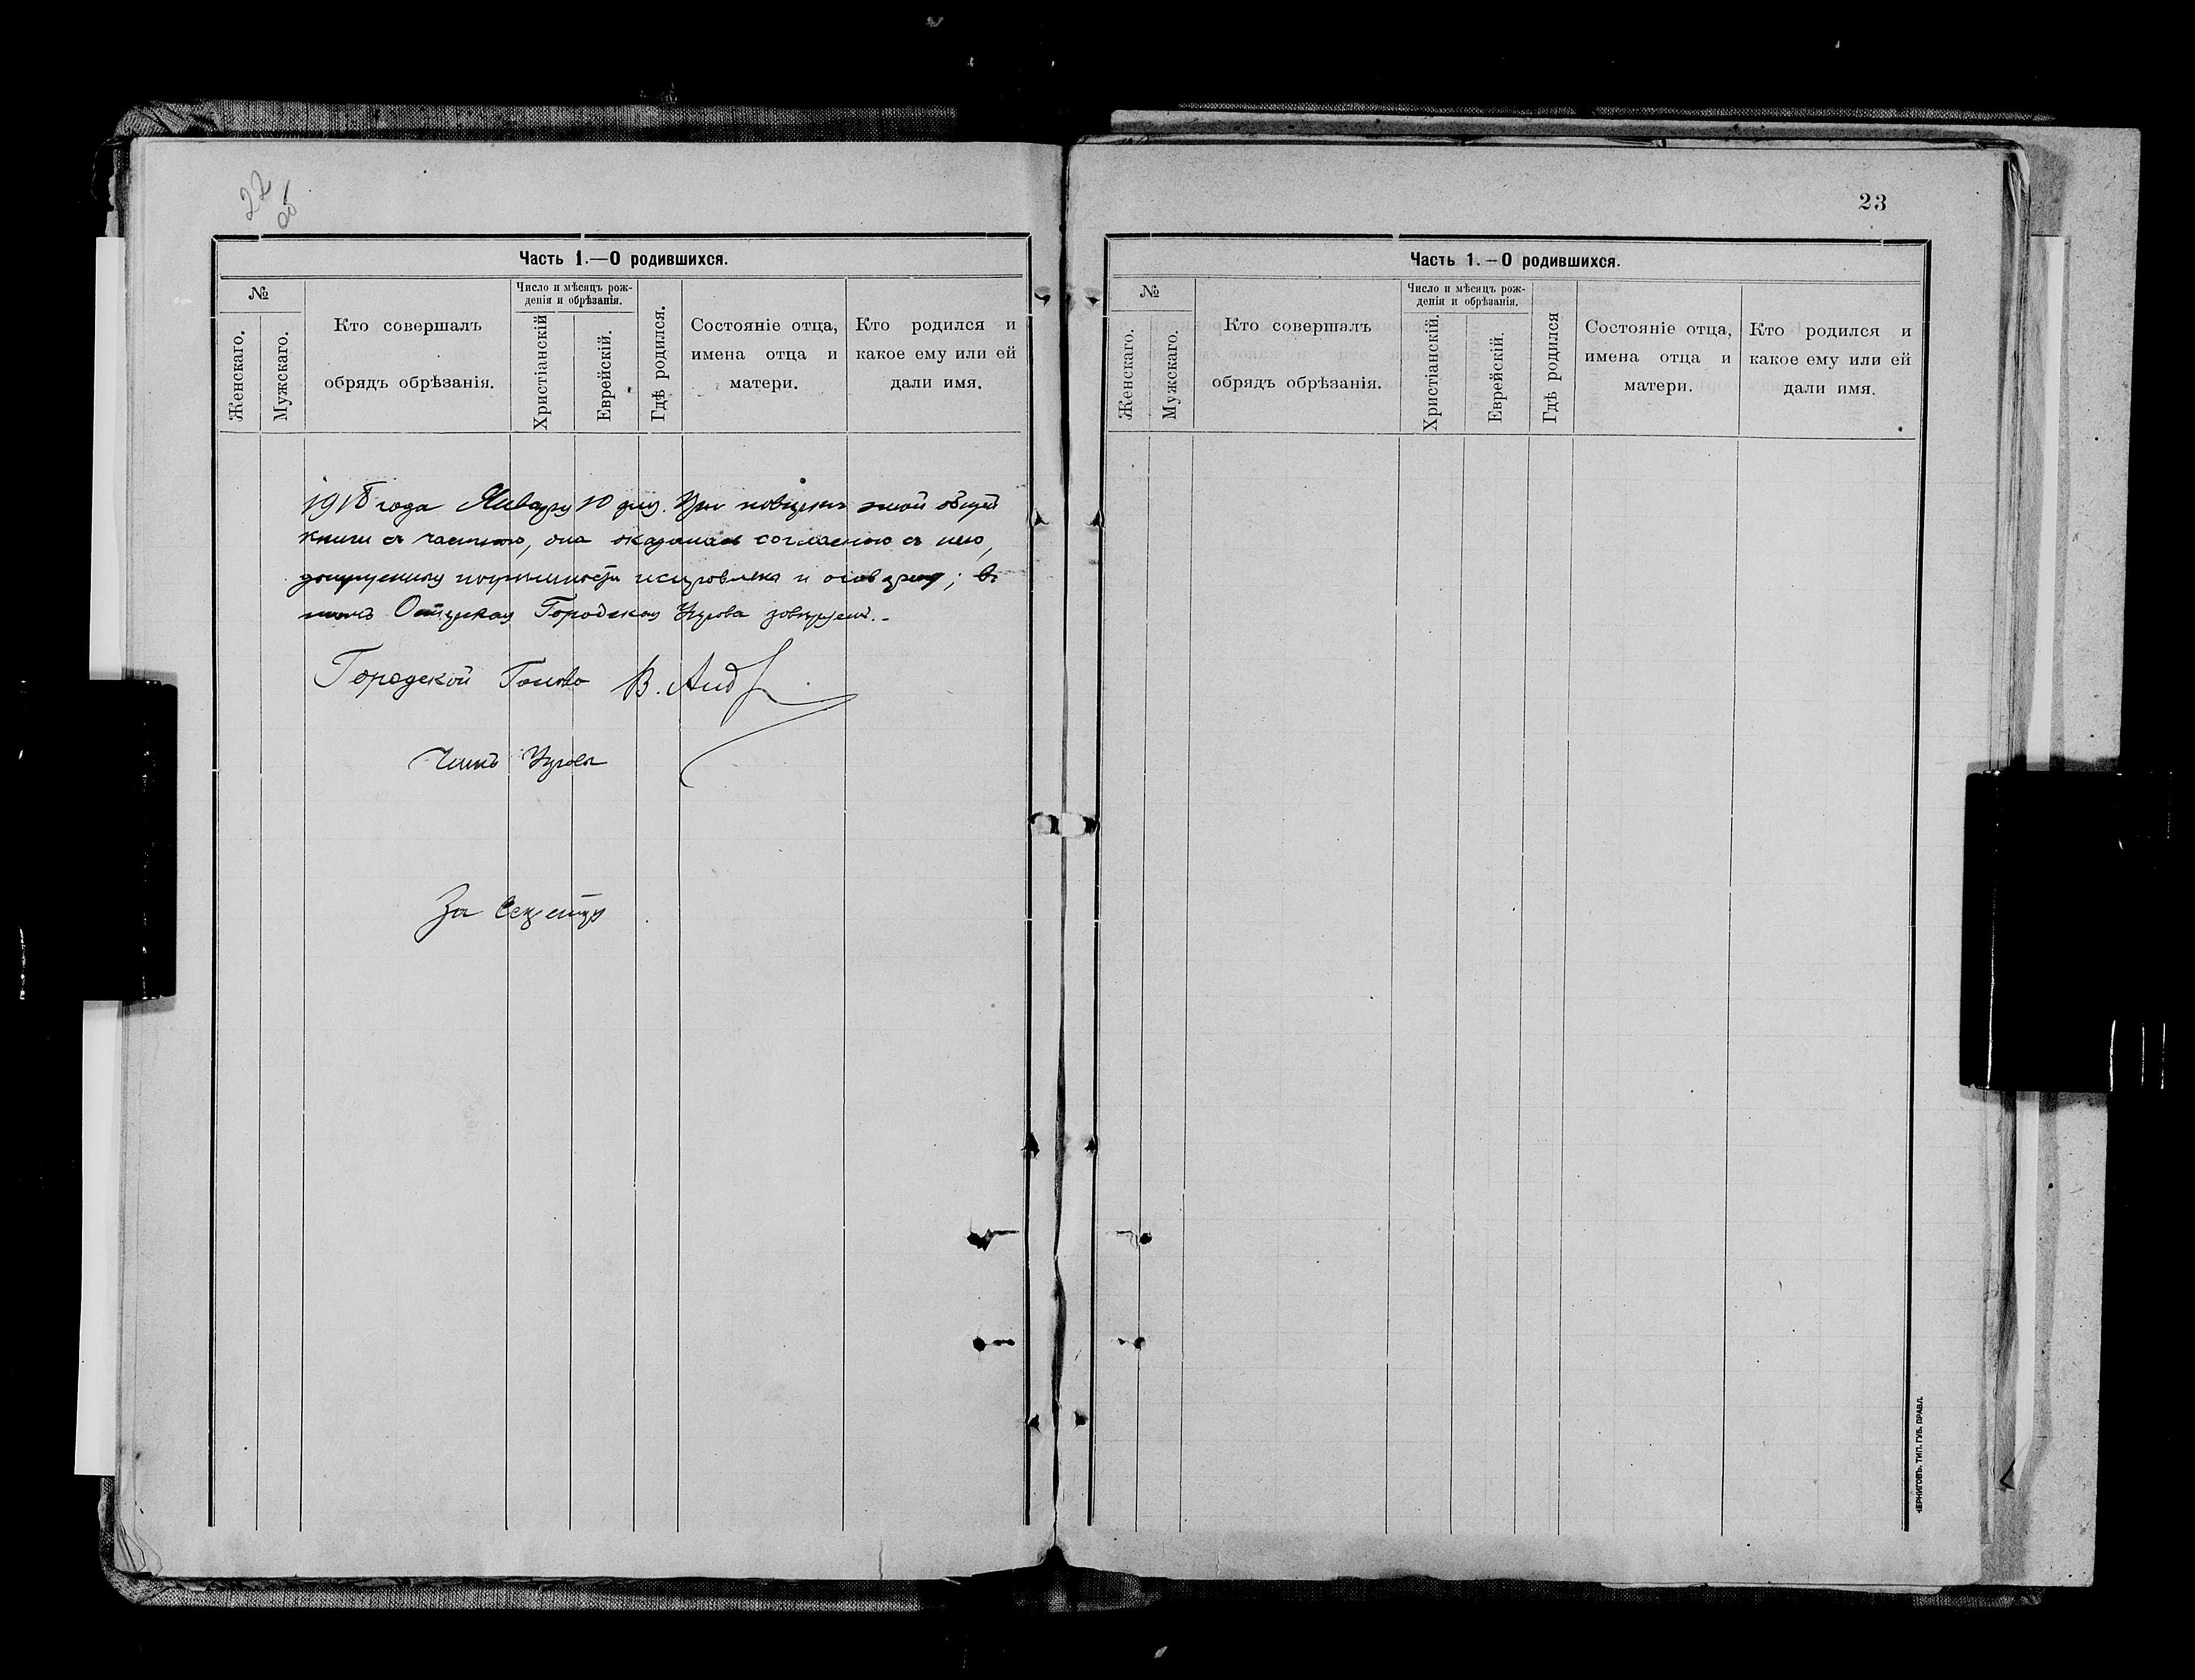 22
об
Часть 1.—О родившихся.
№
Женскаго.
Мужскаго.
Кто совершалъ
обрядъ обрѣзанія.
Число и мѣсяцъ рож-
денія и обрѣзанія.
Христіанскій
Еврейскій.
Гдѣ родился.
Состояніе отца,
имена отца и
матери.
Кто родился и
какое ему или ей
дали имя.
1918 года Января 10 дня. При повѣркѣ этой общей
книги съ частною, она оказалась согласною съ нею,
погрѣшности и въ
томъ Городская Управа
Городской Голова В.
Членъ Управы
За Секретаря
23
Часть 1.—О родившихся.
№
Женскаго.
Мужскаго.
Кто совершалъ
обрядъ обрѣзанія.
Число и мѣсяцъ рож-
денія и обрѣзанія.
Христіанскій.
Еврейскій.
Гдѣ родился
Состояніе отца,
имена отца и
матери.
Кто родился и
какое ему или ей
дали имя.
ЧЕРНИГОВЪ. ТИП. ГУБ. ПРАВЛ.